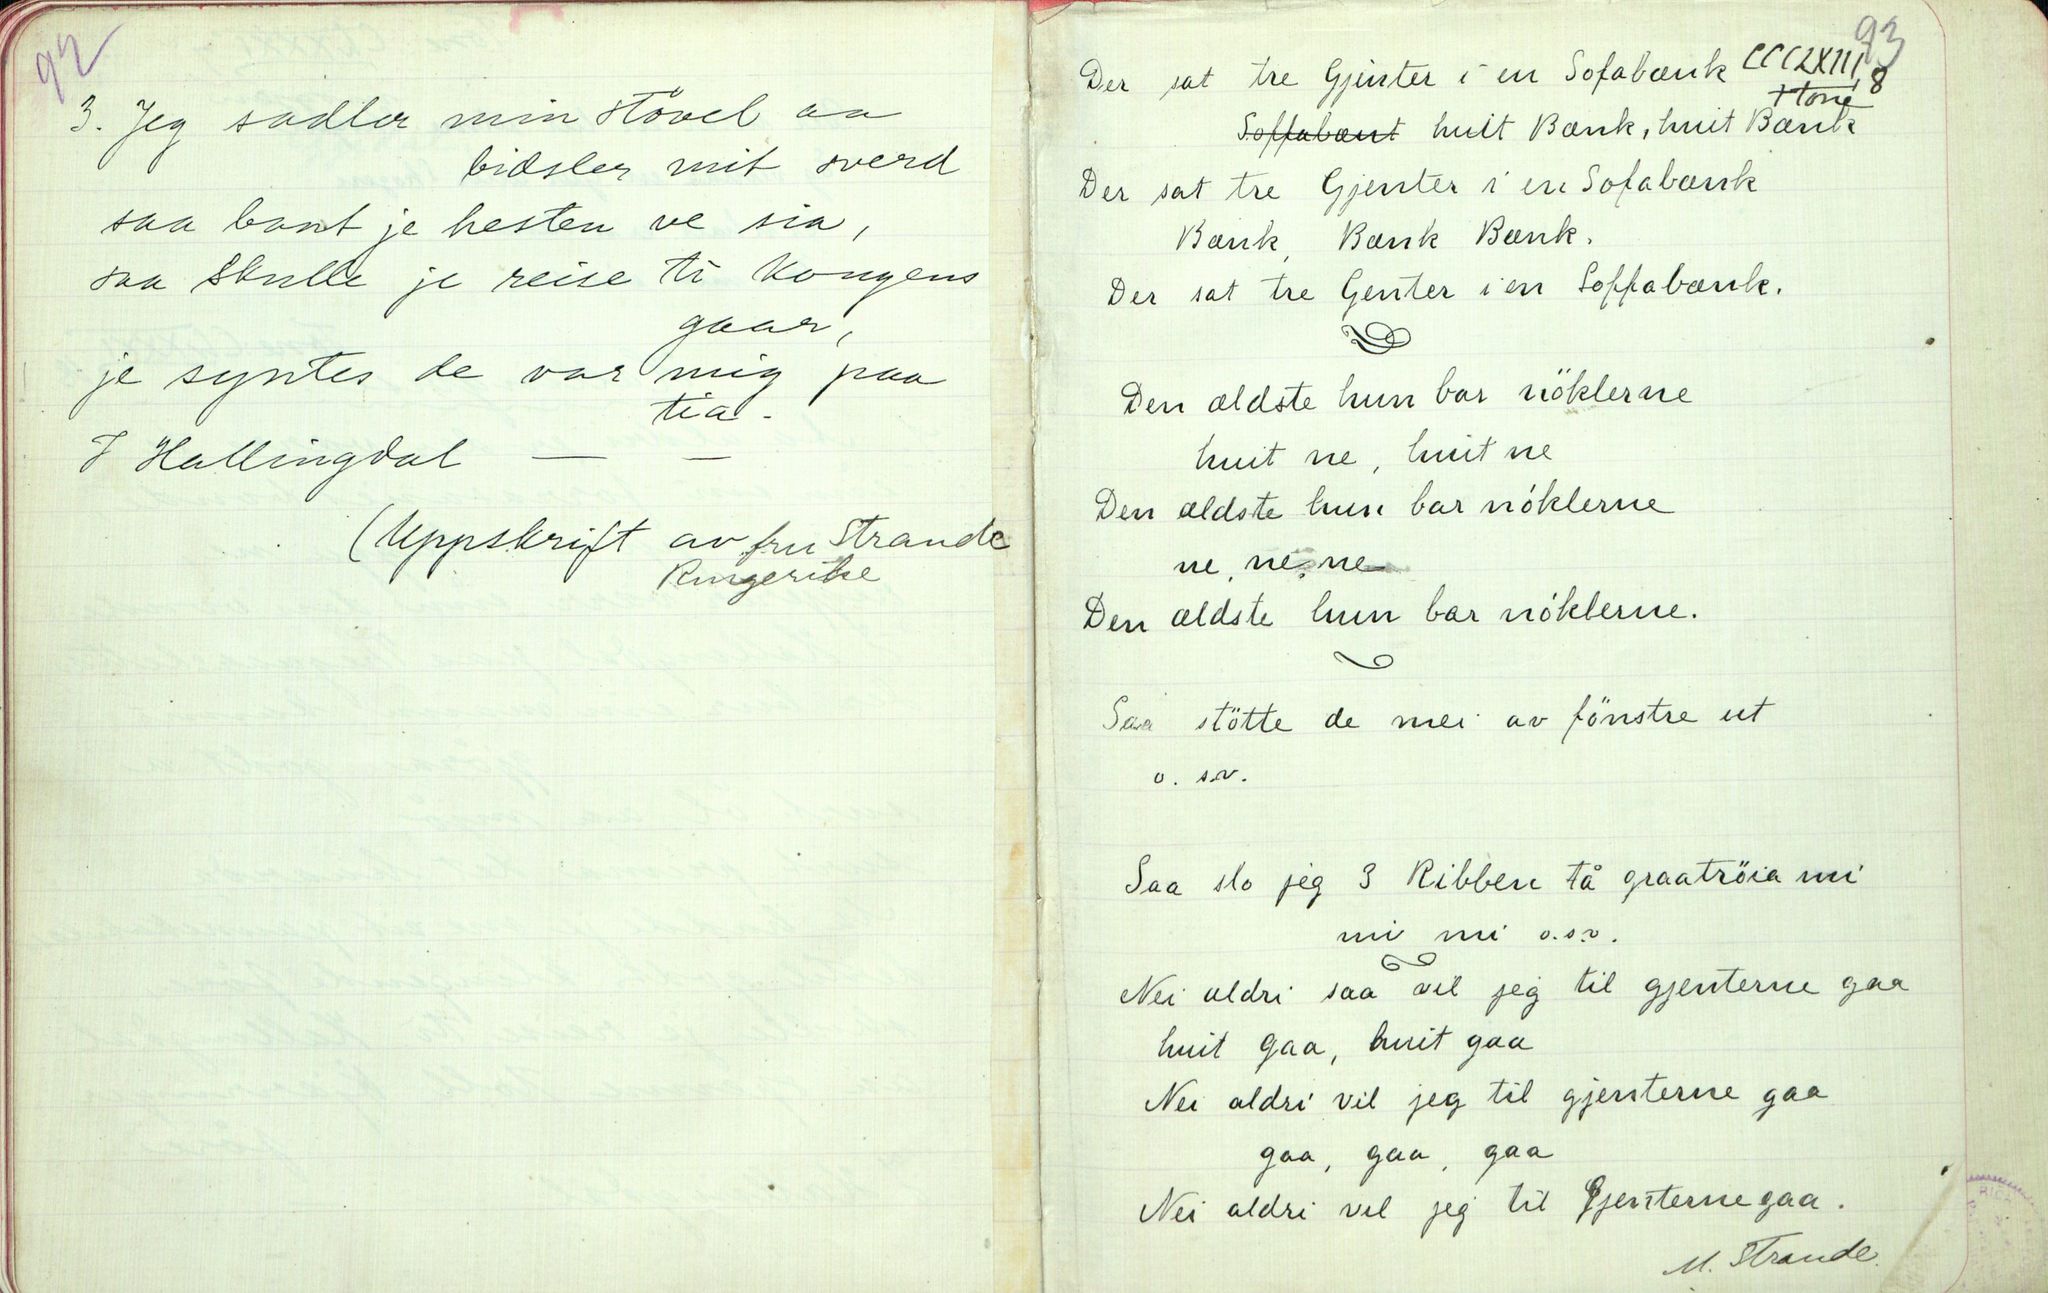 92
3. Jeg sadler min stövel aa
bidsler mit sverd
saa bant je hesten ve sia,
saa skulle je reise ti Kongens
gaar,
je syntes de var mig paa
tia.
I Hallingdal — —
(Uppskrift av fru Strande
Ringerike
93
Der sat tre Gjenter i en Sofabænk CCCLXIII, 8
+ tone
Soffabænt huit Bænk, huit Bænk
Der sat tre Gjenter i en Sofabænk
Bænk, Bænk Bænk.
Der sat tre Genter i en Soffabænk.
Den ældste hun bar nöklerne
huit ne, huit ne
Den ældste hun bar nöklerne
ne, ne, ne
Den ældste hun bar nöklerne.
Saa stötte de mei av fönstre ut
o. s.v.
Saa slo jeg 3 Ribben tå graatröia mi
mi mi o.s.v.
Nei aldri saa vil jeg til gjenterne gaa
huit gaa, huit gaa
Nei aldri vil jeg til gjenterne gaa
gaa, gaa, gaa
Nei aldri vil jeg til Gjenterne gaa.
M. Strande.